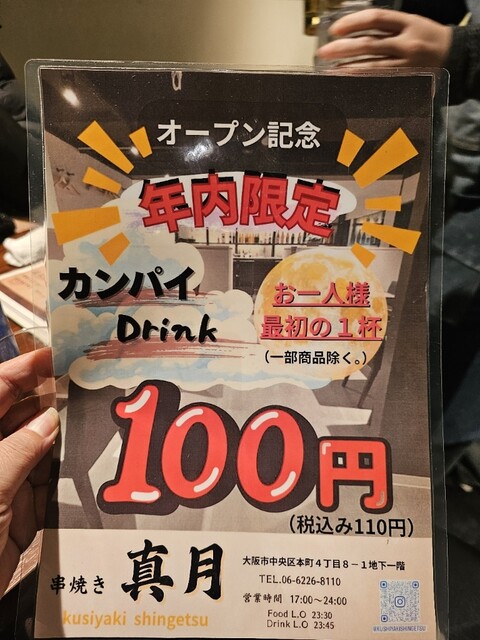 オープン記念
年内限定
カンパイ
Drink
お一人様
最初の1杯
(一部商品除く。)
100円
(税込み110円)
串焼き 真月
kusiyaki shingetsu
大阪市中央区本町4丁目8-1地下一階
TEL.06-6226-8110
営業時間 17:00~24:00
Food L.O 23:30
Drink L.O 23:45
@KUSHIYAKISHINGETSU